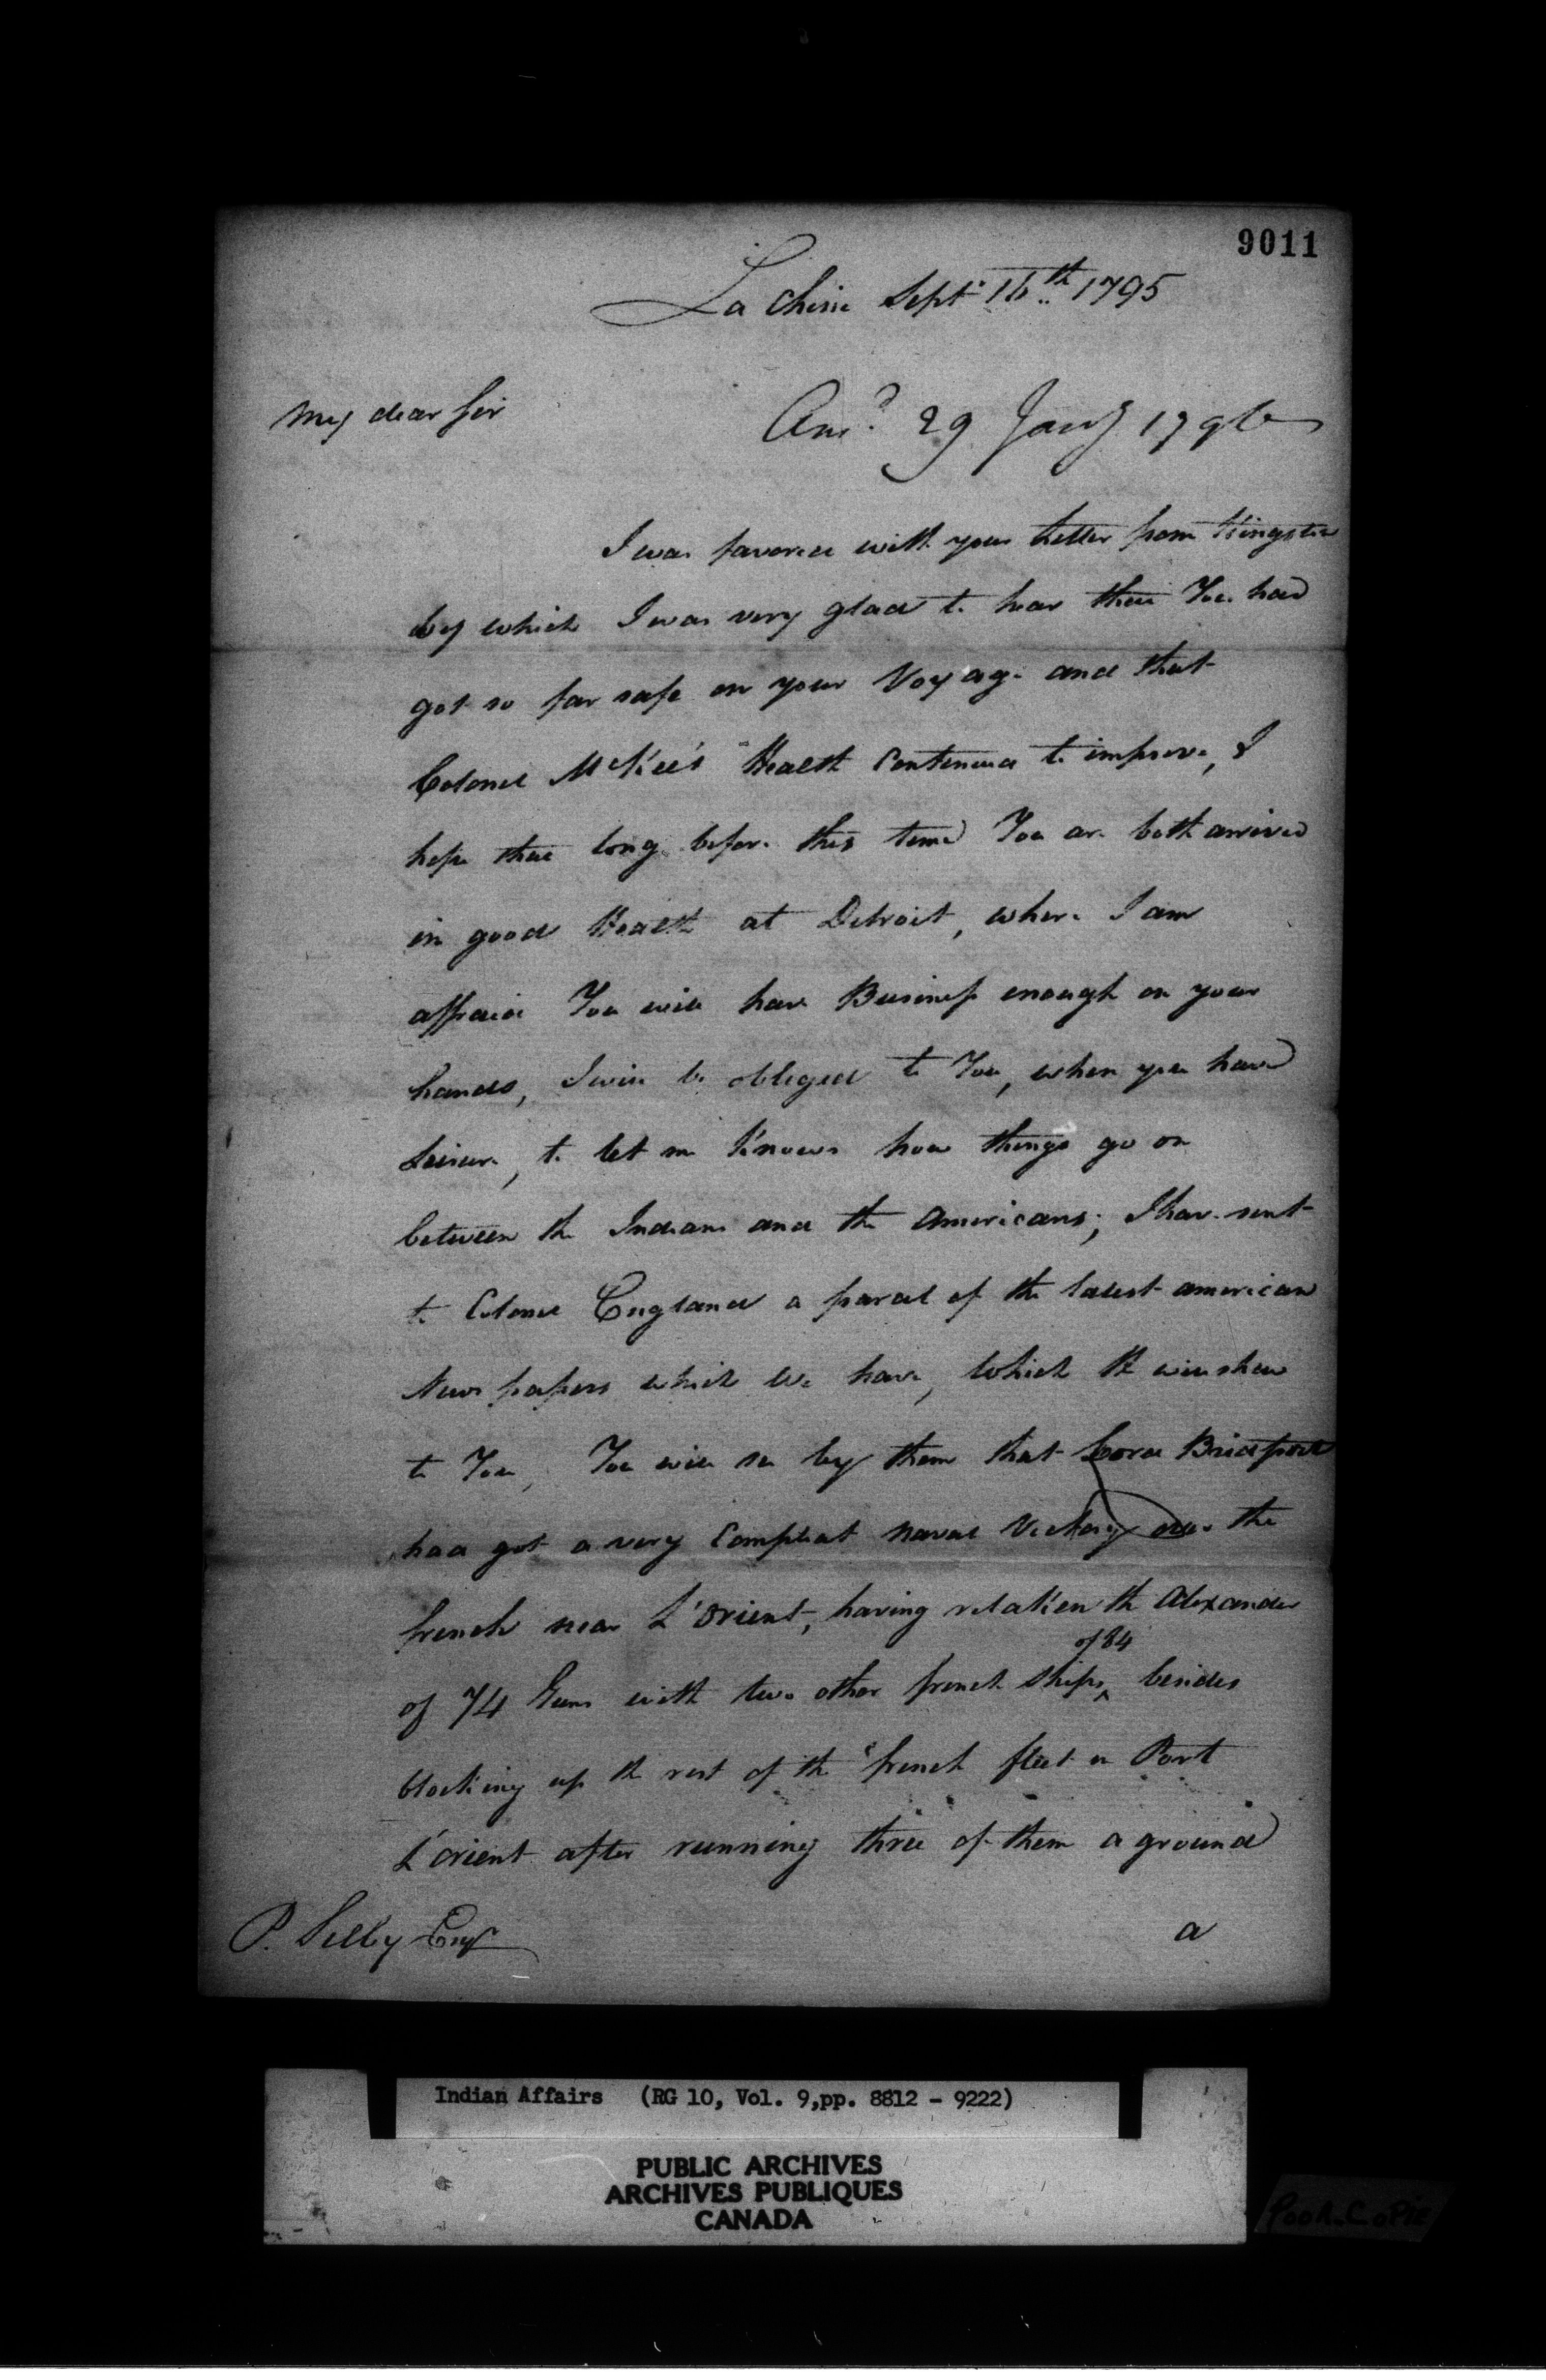 9011
La Chine Sept.r 16.th 1795
My dear Sir
Ans.d 29 Jan.y 1796
I was favored with your Letter from Kingston
by which I was very glad to hear that You had
got so far safe on your Voyage and that
Colonel McKee's Health continued to improve, I
hope that long before this time You are both arrived
in good Health at Detroit, where I am
affraid You will have Business enough on your
hands, I will be obliged to You, when you have
Leisure, to let me Know how things go on
between the Indians and the Americans; I have sent
to Colonel England a parcel of the latest american
News papers which We have, Which He will shew
to You, You will see by them that Lord Bridport
had got a very Compleat naval Victory over the
french near L'Orient, having retaken the Alexander
of 74 Guns with two other french Ships ^ of 84 besides
blocking up the rest of the french fleet in Port
L'orient after running three of them a ground
P. Selby Esqr
a
Indian Affairs (RG 10, Vol. 9, pp. 8812 - 9222)
PUBLIC ARCHIVES
ARCHIVES PUBLIQUES
CANADA
POOR COPIE